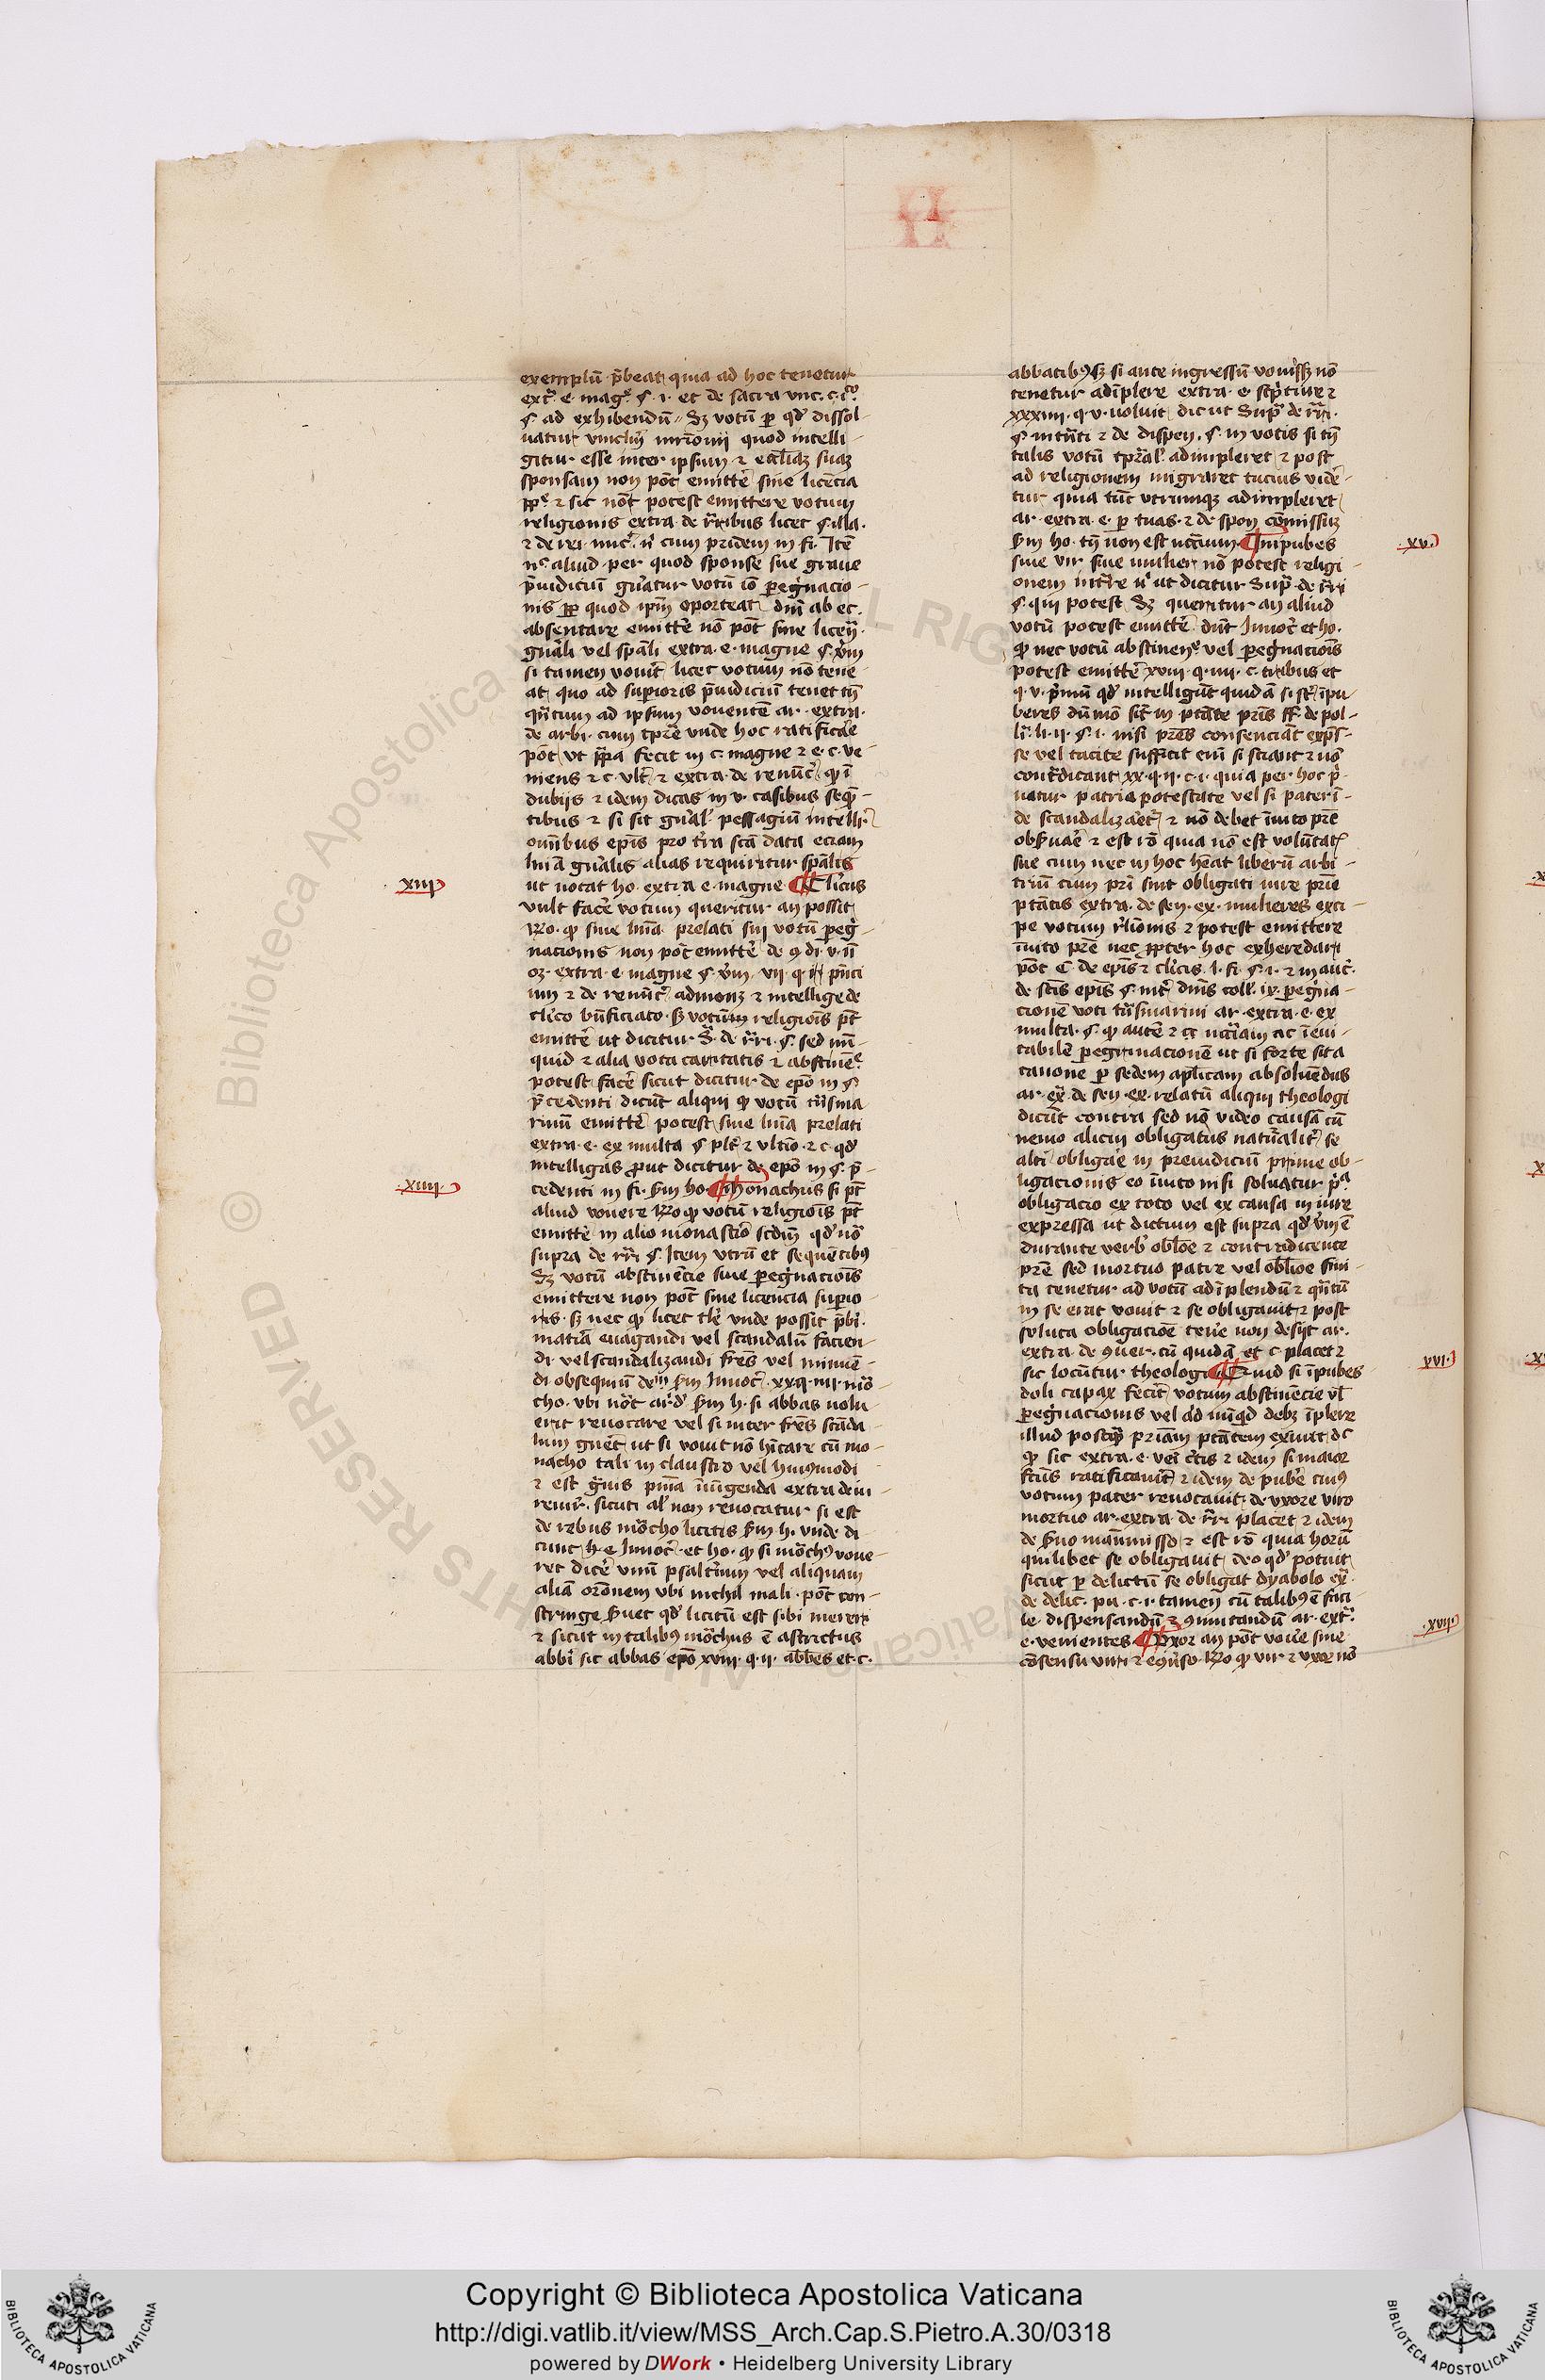 II
exemplū p̄beat quia ad hoc tenetur
extͣ. e. magᵉ. §. i. et de sacra unc. c. i.
§. ad exhibendū Sꝫ votū ꝑ qd̓ dissol-
uatur vincl̓m mr̄ionij quod intelli-
gitur esse inter ipsum ⁊ eccl̄iaꝫ suaꝫ
sponsam non pōt emitte̓ sine licēcia
pp̄ᵉ ⁊ sic nōt potest emittere votum
religionis extra de rr̄ibus licet §. illa.
⁊ de rei. cum pridem in fi. Itē
aliud per quod sponse sue graue
p̄iudiciū gn̓atur votū iō ꝑegͥnacio-
nis ꝓp̄ quod ip̄m oporteat diu ab ec.
absentare emitte̓ nō pōt sine licen̄.
gn̓ali vel spāli extra. e. magne §. v̓m
si tamen vouit̓ licet votum nō tene-
at quo ad suꝑioris p̄iudiciū tenet tn̄
qn̄tum ad ipsum vouentē ar. extra.
de arbi. cum tꝑre vnde hoc ratificāe
pōt ut pp̄a fecit in c. magne ⁊ e. c. ve-
niens ⁊ c. vlt̓ ⁊ extra. de renūc̓. ꝙ ī
dubijs ⁊ idem dicas in v. casibus seqn̄-
tibus ⁊ si sit gn̓al̓ passagiū intelli.
omībus ep̄is pro tr̓a sc̄a data eciam
lnīa gn̓alis alias requiritur spālis
ut notat ho. extra e. magne. ¶ Cl̓icus
.xiij.
vult face̓ votum queritur an possit
Rͦo. ꝙ sine lnīa prelati sui votū ꝑegͥ-
nacionis non pōt emitte̓ de ꝯ. di. v. n̄
oꝫ. extra. e. magne §. v̓m. vii. q. i. pn̄ci
⁊ de renūc̓. admonꝫ ⁊ intellige de
cl̓ico bn̄ficiato. Sꝫ votum religiois pōt
emitte̓ ut dicitur s. de rr̄i. §. sed nū-
quid ⁊ alia vota castitatis ⁊ abstinēᵉ
potest face̓ sicut dicitur de ep̄o in §.
p̄cedenti dicūt aliqui ꝙ votū tn̄sma
rinū emitte̓ potest sine lnīa prelati
extra. e. ex multa §. plr̄ ⁊ vltio. ⁊ c. qd̓
intelligas prout dicitur de ep̄o in §. p̄-
cedenti in fi. sm̄ ho. ¶ Monachus si pōt
.xiiij.
aliud vouere Rͦo ꝙ votū religiois pōt
emitte̓ in alio monastio̓ qd̓ nō
supra de rr̄i. §. Item vtrū et sequētibꝰ
Sꝫ votū abstinēcie siue ꝑegͥnaciois
emittere non pōt sine licencia suꝑio
ris. sꝫ nec ꝙ licet tl̓e vnde possit p̄bi̓.
matiā euagandi vel scandalū facien-
di vel scandalizandi fr̄es vel minuē-
di obsequiū deᵐ sm̄ Innoc̓. xx. q. iiij. mō
cho. vbi nōt ar̓d̓ sm̄ h. si abbas uolu
erit reuocare vel si inter fr̄es scāda
lum gn̄et ut si vouit nō hītare cū mo-
nacho tali in claustro vel huiꝰmodi
⁊ est gͣuis pnīa iniūgenda extra de iu
reiur̓. sicuti al̓ non reuocatur si est
de rebus mōcho licitis sm̄ h. vnde di
cunt h. e. Innoc̓. et ho. ꝙ si mōchꝰ voue-
ret dice̓ vnū psaltium vel aliquam
aliā orōnem vbi nichil mali. pōt con-
stringe suet qd̓ licitū est sibi mereri
⁊ sicut in talibꝰ mōchus ē astrictus
abbi̓ sic abbas ep̄o xviii. q. ii. abbēs et. c.
abbatibꝰ Sꝫ si ante ingressū vouissꝫ nō
tenetur adīplere extra. e. scp̓ture ⁊
xxxiiii. q. v. noluit dic ut supͣ de rr̄i.
§. intn̄ti ⁊ de dispen. §. in votis si tn̄
talis votū tꝑal̓. adimpleret ⁊ post
ad religionem migraret tucius vide̓
tur quia tūc utrumqꝫ adimpleret
ar. extra. e. ꝑ tuas. ⁊ de spon cōmissuꝫ
sm̄ ho. tn̄ non est nc̄rium. ¶ Impubes
.xv.
siue vir siue mulier nō potest religi
onem intr̄e ut dicitur supͣ. de rr̄i
§. qui potest Sꝫ queritur an aliud
votū potest emitte̓ dūt Innoc̓ et ho.
ꝙ nec votū abstinenᵉ. vel ꝑegͥnaciois
potest emitte̓ xviii. q. iiii. c. tribus et
q. v. pͥmū qd̓ intelligūt quidā si st̓ īpu
beres dūmō sit̓ in ptāte pr̄is ff. de pol-
li. l. ii. §. i. nisi pr̄es consenciāt expͣs-
se vel tacite sufficit eni si sciant ⁊ nō
contͣdicant xx. q. ii. c. i. quia per hoc pͥ-
uatur patria potestate vel si pater ī-
de scandalizaet̓ ⁊ nō debet īuito pr̄e
obsuae̓ ⁊ est rō quia nō est volūtat̓
sue cum nec in hoc hēat liberū arbi-
triū cum pri sint obligati iure pr̄ie
ptātis extra. de sen. ex. mulieres exci-
pe votum rl̓ionis ⁊ potest emittere
īuito pr̄e nec ꝓpter hoc exheredari
pōt C. de ep̄is ⁊ cl̓icis. l. fi. §. i. ⁊ in auc̓.
de sc̄is ep̄is §. int̓ diuis coll̓. ix. ꝑegͥna-
cionē voti tn̄smarini ar. extra. e. ex
multa. §. ꝙ autē ⁊ nc̄riam ac īeui-
tabilē ꝑegrinacionē ut si forte sit a
canone ꝑ sedem aplicam absoluēdus
ar. exͣ. de sen. ex. relatū aliqui theologi
dicūt contra sed nō video causā cū
nemo alicui obligatus natuͣalit̓ se
alti̓ obligae̓ in preiudiciū prime ob-
ligacionis eo īuito nisi soluatur pͥᵃ
obligacio ex toto vel ex causa in iure
expressa ut dictum est supra qd̓ v̓m ē
durante verb̓ obl̄oe ⁊ contradicente
pr̄e sed mortuo patre vel obl̄ioe fini-
ta tenetur ad votū adīplendū ⁊ qn̄tū
in se erat vouit ⁊ se obligauit ⁊ post
soluta obligacioē non desijt ar.
extra de ꝯuer. cū quidā et c. placet ⁊
sic locūtur theologi ¶ Quid si īpubes
.xvi.
doli capax fecit̓ votum abstinēcie vl̄
ꝑegͥnacionis vel ad nūqd̓ debꝫ īplere
illud postqͣ pr̄iam ptātem exiuit dᵒ
ꝙ sic extra. e. vei c̓tis ⁊ idem si maior
fc̄us ratificauit̓ ⁊ idem de pube̓ cuiꝰ
votum pater reuocauit de vxore viro
mortuo ar. extra de rr̄i placet ⁊ idem
de suo manūmisso ⁊ est rō quia horū
quilibet se obligauit deo qd̓ potuit
sicut ꝑ delictū se obligat dyabolo exͣ.
de delic. pu. c. i. tamen cū talibꝰ ē faci
le dispensandū ⁊ ꝯmutandū ar. extͣ.
e. venientes. ¶ Vxor an pōt voue̓ sine
.xvii.
cōsensu uiri ⁊ econuso. Rͦo ꝙ vir ⁊ vxor nō
Copyright © Biblioteca Apostolica Vaticana
http://digi.vatlib.it/view/MSS_Arch.Cap.S.Pietro.A.30/0318
powered by DWork • Heidelberg University Library